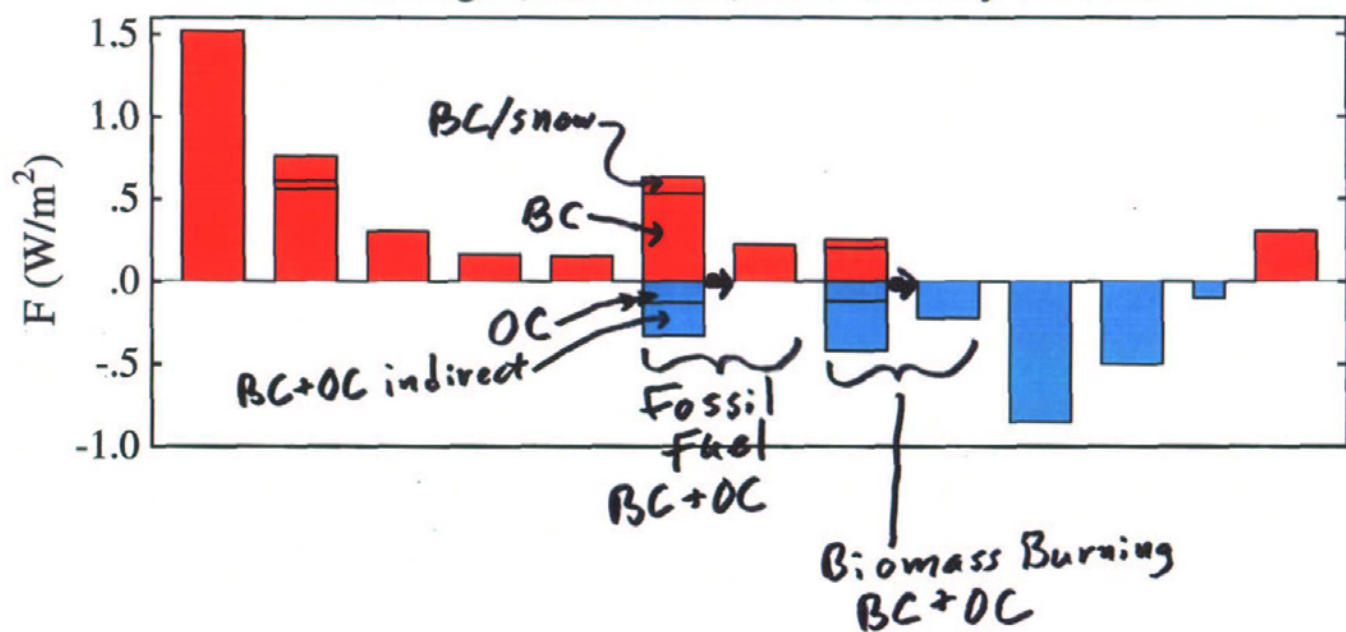 1.5
1.0
.5
.0
-.5
-1.0
F (W/m²)
BC/snow
BC
OC
BC+OC indirect
Fossil
Fuel
BC+OC
Biomass Burning
BC+OC